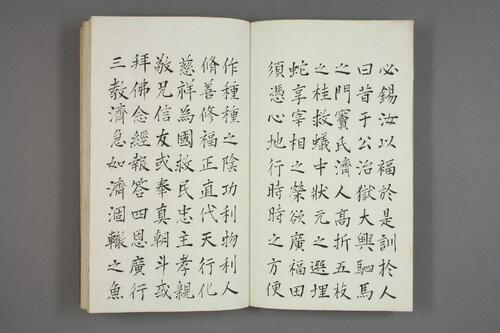 必錫汝以福於是訓於人
曰昔于公治獄大興駟馬
之門竇氏濟人髙折五枝
之桂救蟻中狀元之選埋
蛇享宰相之榮欲廣福田
須憑心地行時時之方便
作種種之陰功利物利人
脩善修福正直代天行化
慈祥為國救民忠主孝親
敬兄信友或奉真朝斗或
拜佛念經報答四恩廣行
三教濟急如濟涸轍之魚